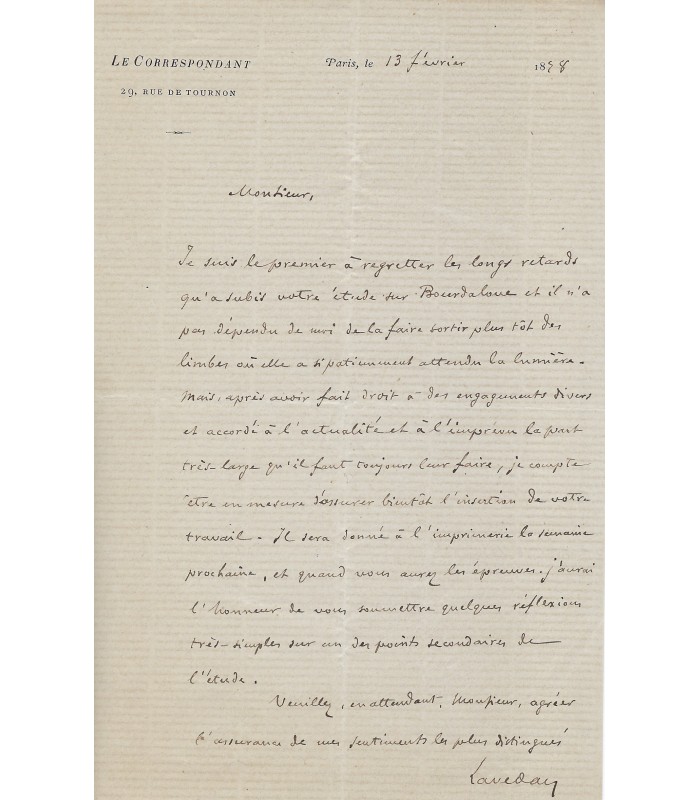 LE CORRESPONDANT
29, RUE DE TOURNON
Paris, le 13 février 1898
Monsieur,
Je suis le premier à regretter les longs retards
qu'a subis votre étude sur Bourdaloue et il n'a
pas dépendu de moi de la faire sortir plus tôt des
limbes où elle a si patiemment attendu la lumière.
Mais, après avoir fait droit à des engagements divers
et accordé à l'actualité et à l'imprévu la part
très-large qu'il faut toujours leur faire, je compte
être en mesure d'assurer bientôt l'insertion de votre
travail. Il sera donné à l'imprimerie la semaine
prochaine, et quand vous aurez les épreuves, j'aurai
l'honneur de vous soumettre quelques réflexions
très-simples sur un des points secondaires de
l'étude.
Veuillez, en attendant, Monsieur, agréer
l'assurance de mes sentiments les plus distingués
Lavedan